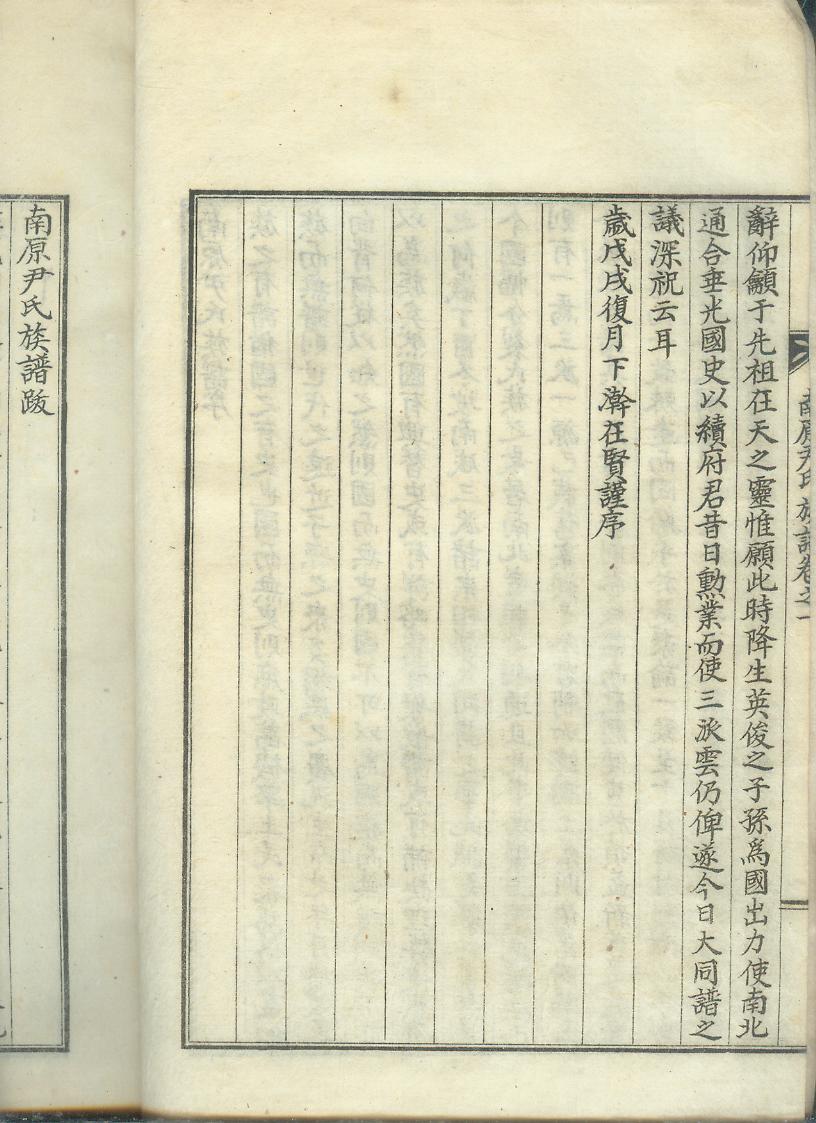 南原尹氏族譜卷之一
辭仰籲于先祖在天之靈惟願此時降生英俊之子孫爲國出力使南北
通合垂光國史以續府君昔日勳業而使三派雲仍俾遂今日大同譜之
議深祝云耳
歲戊戌復月下澣在賢謹序
南原尹氏族譜跋